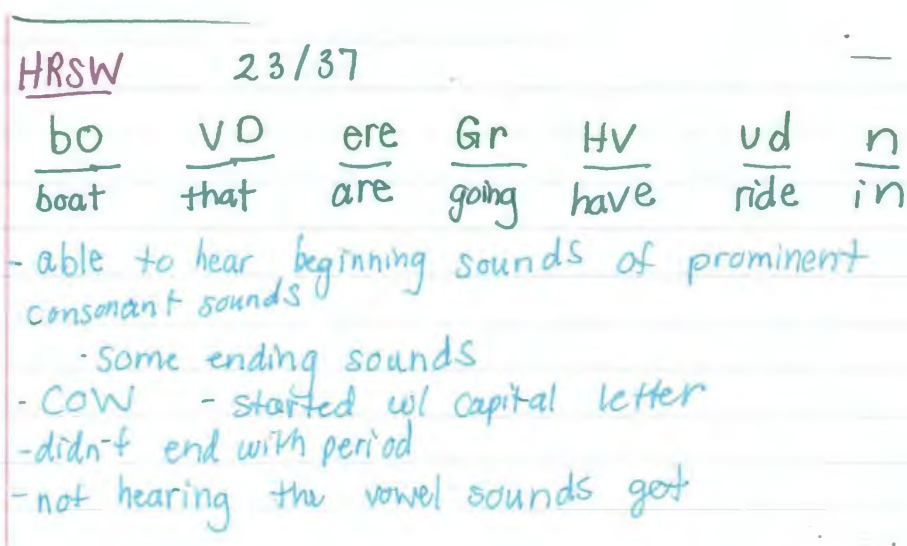 HRSW 23/37
bo VD ere Gr HV ud n
boat that are going have ride in
- able to hear beginning sounds of prominent
consonant sounds
· some ending sounds
- COW - started w/ capital letter
- didn't end with period
- not hearing the vowel sounds get